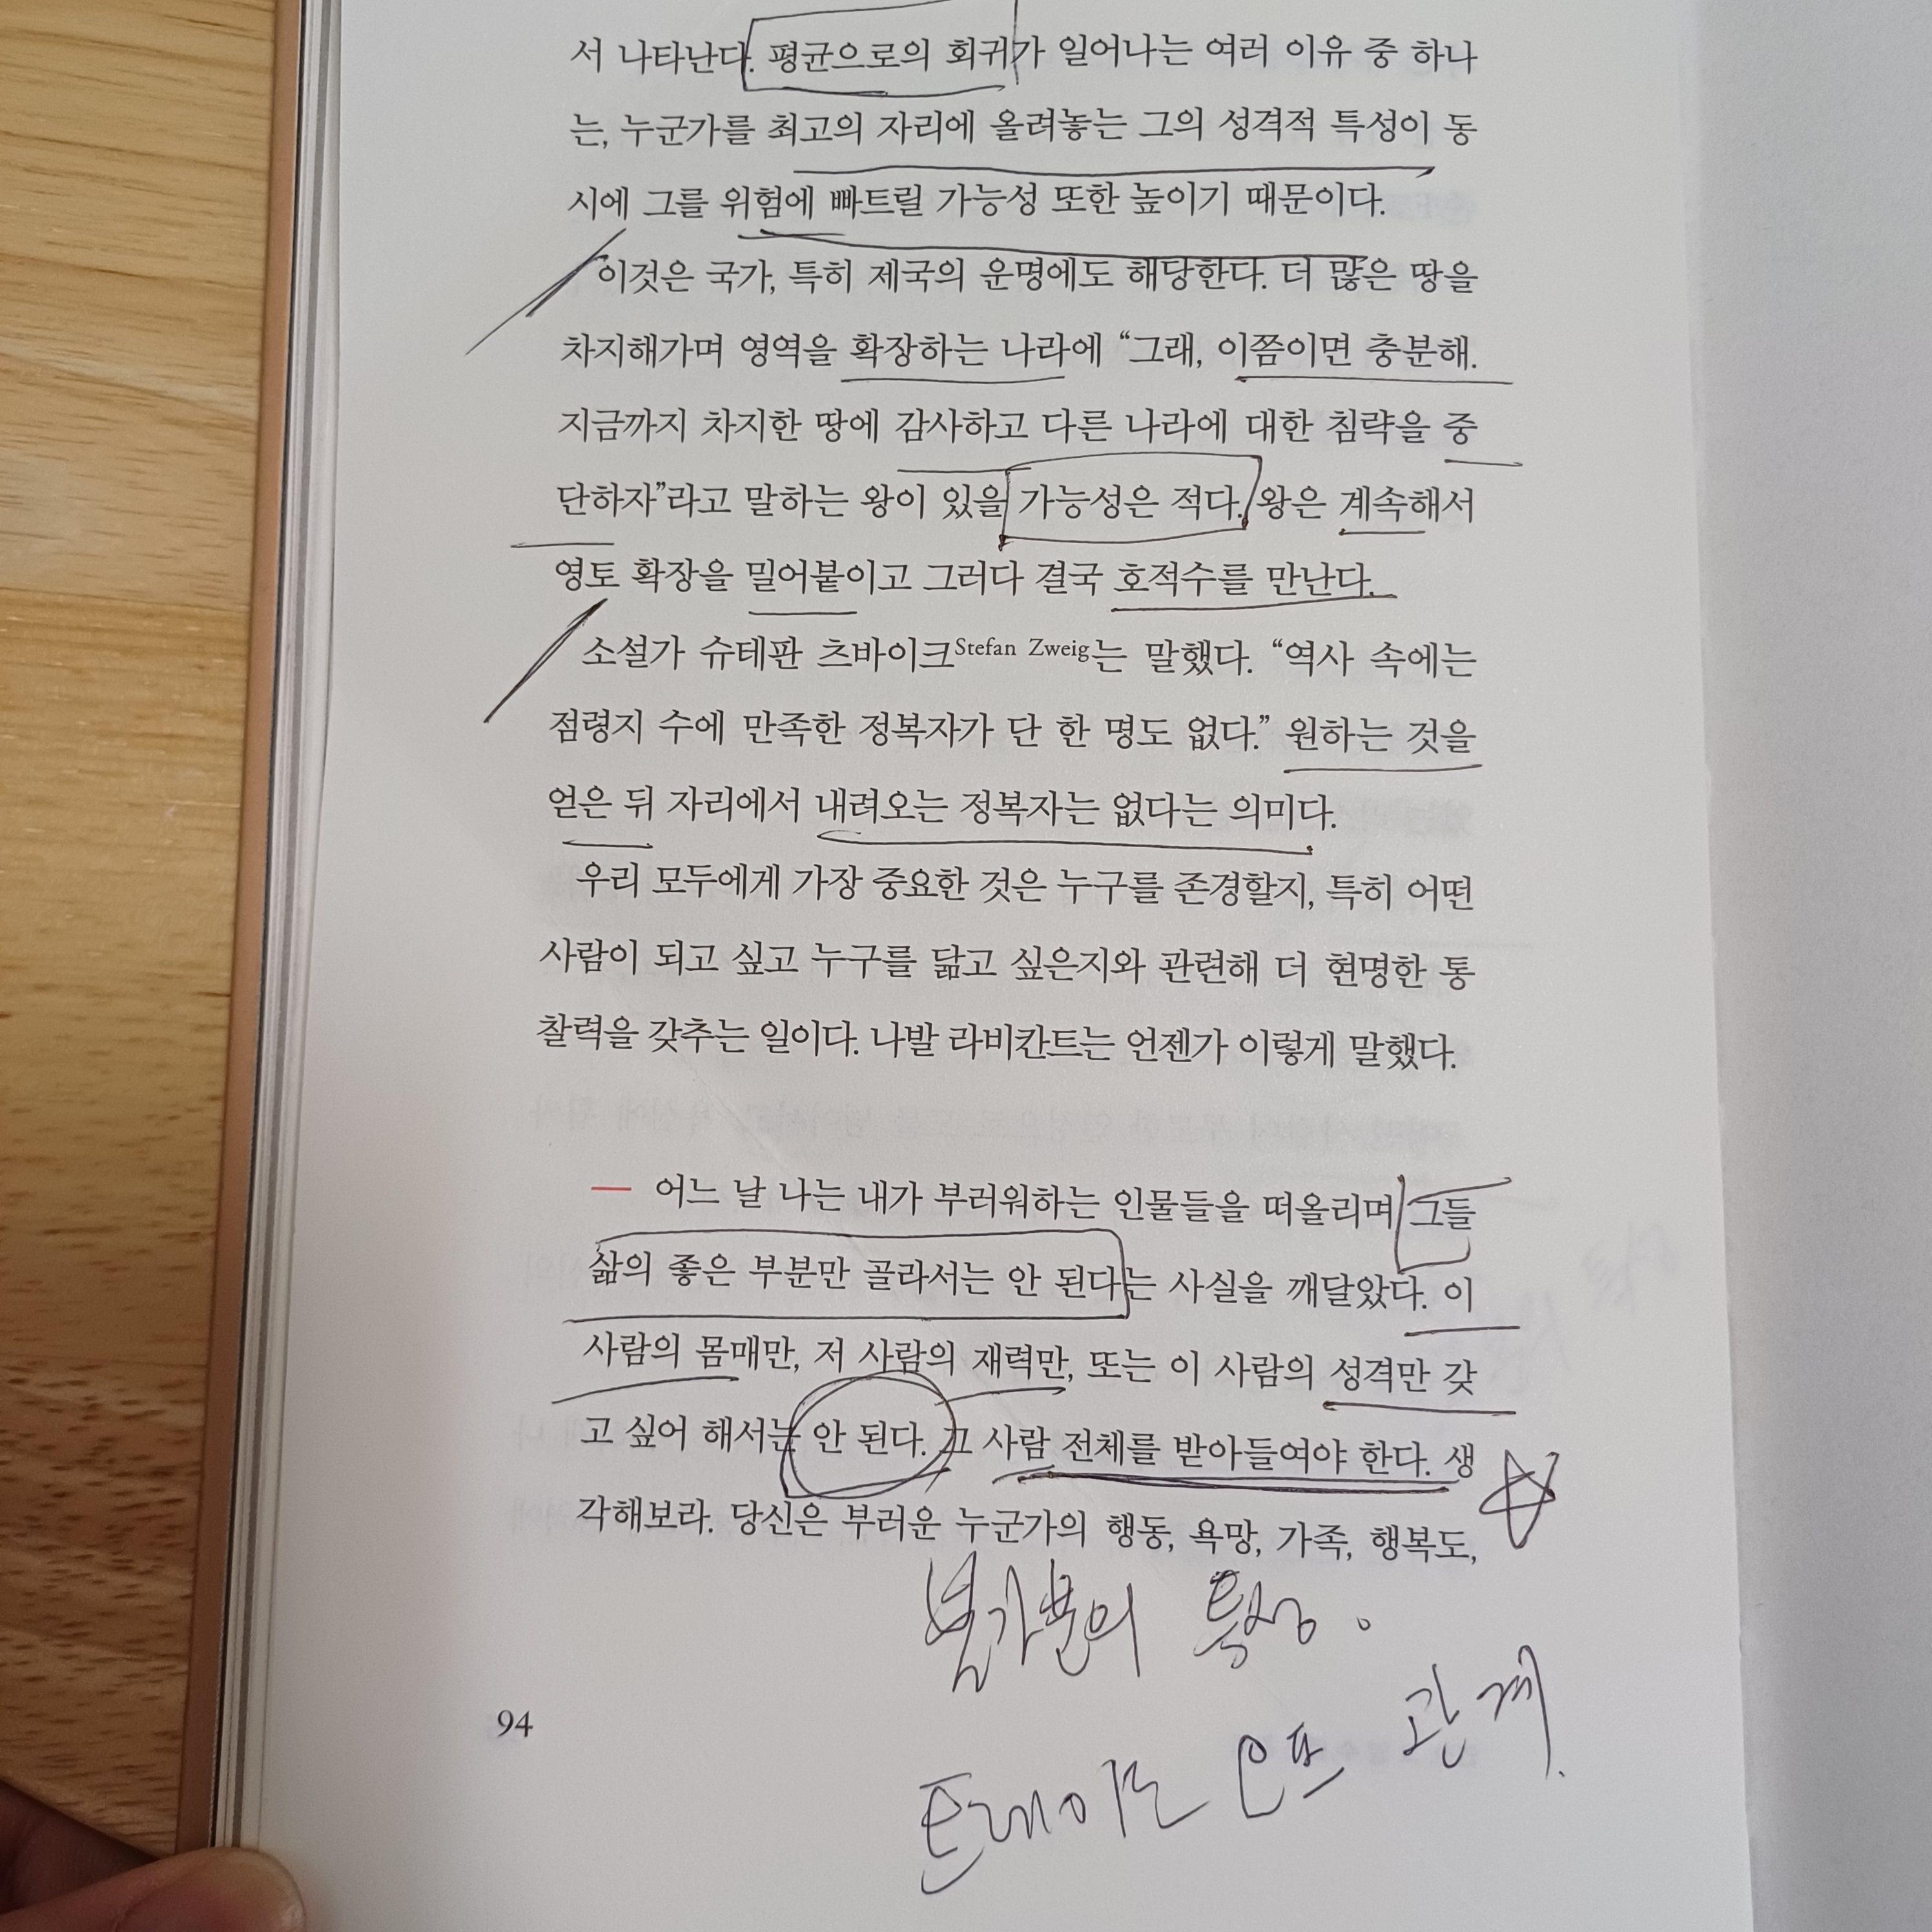 서 나타난다. 평균으로의 회귀가 일어나는 여러 이유 중 하나
는, 누군가를 최고의 자리에 올려놓는 그의 성격적 특성이 동
시에 그를 위험에 빠트릴 가능성 또한 높이기 때문이다.
이것은 국가, 특히 제국의 운명에도 해당한다. 더 많은 땅을
차지해가며 영역을 확장하는 나라에 “그래, 이쯤이면 충분해.
지금까지 차지한 땅에 감사하고 다른 나라에 대한 침략을 중
단하자”라고 말하는 왕이 있을 가능성은 적다. 왕은 계속해서
영토 확장을 밀어붙이고 그러다 결국 호적수를 만난다.
소설가 슈테판 츠바이크Stefan Zweig는 말했다. “역사 속에는
점령지 수에 만족한 정복자가 단 한 명도 없다.” 원하는 것을
얻은 뒤 자리에서 내려오는 정복자는 없다는 의미다.
우리 모두에게 가장 중요한 것은 누구를 존경할지, 특히 어떤
사람이 되고 싶고 누구를 닮고 싶은지와 관련해 더 현명한 통
찰력을 갖추는 일이다. 나발 라비칸트는 언젠가 이렇게 말했다.
— 어느 날 나는 내가 부러워하는 인물들을 떠올리며 그들
삶의 좋은 부분만 골라서는 안 된다는 사실을 깨달았다. 이
사람의 몸매만, 저 사람의 재력만, 또는 이 사람의 성격만 갖
고 싶어 해서는 안 된다. 그 사람 전체를 받아들여야 한다. 생
각해보라. 당신은 부러운 누군가의 행동, 욕망, 가족, 행복도,
불가분의 특성.
트레이드 오프 관계.
94